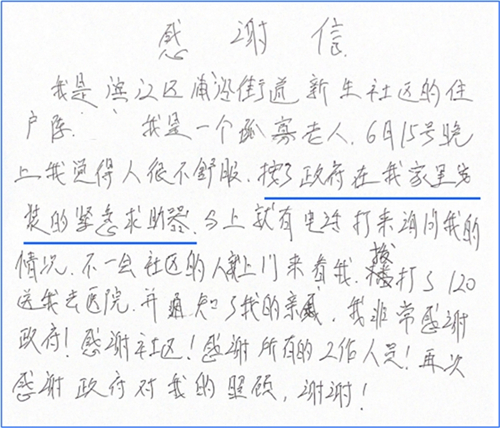 感谢信
我是滨江区浦沿街道新生社区的住
户陈. 我是一个孤寡老人.6月15号晚
上我觉得人很不舒服.按了政府在我家里安
装的紧急求助器.马上就有电话打来询问我的
情况.不一会社区的人就上门来看我.拨打了120
送我去医院.并通知了我的亲戚,我非常感谢
政府!感谢社区!感谢所有的工作人员!再次
感谢政府对我的照顾,谢谢!